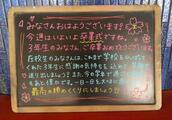 みなさんおはようございます!
今週はいよいよ卒業式ですね。
3年生のみなさん、ご卒業おめでとうございます。
在校生のみなさんは、これまで学校を
くれた3年生に感謝の気持ちを込めて、
送り出しましょう! また今の学年で過ごす
もあと僅かです。一日一日を大切に
最高の締めくくりにしましょう